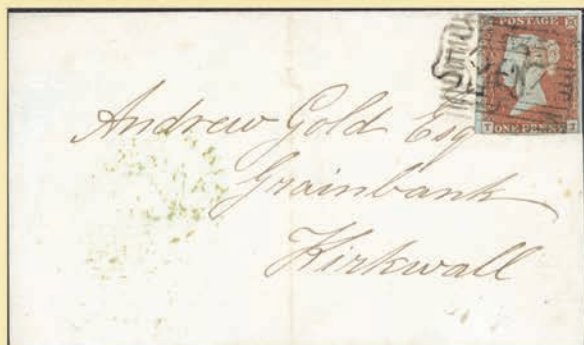 POSTAGE
ONE PENNY
Andrew Gold Esq
Grainbank
Kirkwall